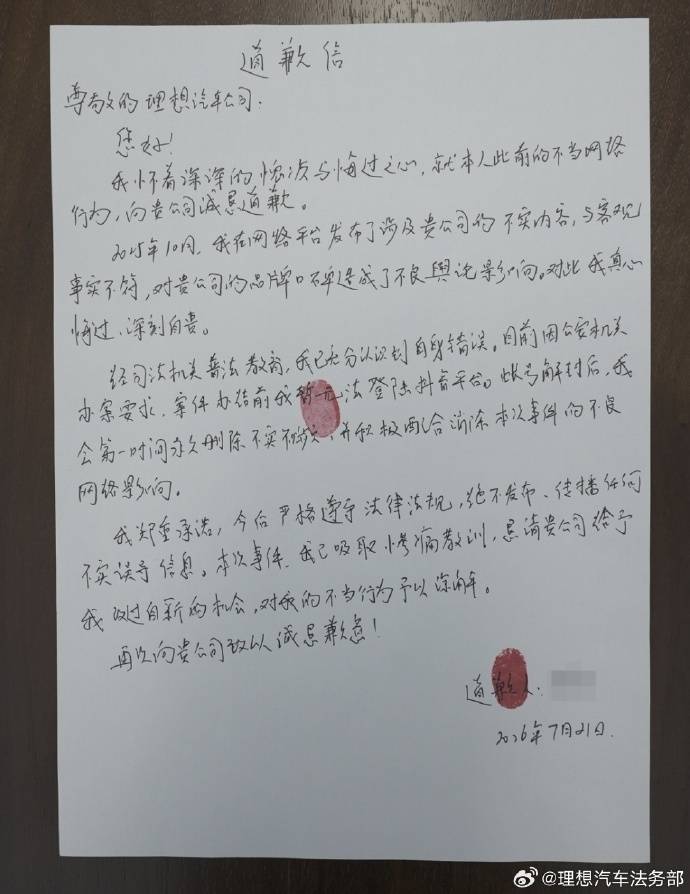 道歉信
尊敬的理想汽车公司.
您好!
我怀着深深的愧疚与悔过之心,就本人此前的不当网络
行为,向贵公司诚恳道歉。
2025年10月,我在网络平台发布了涉及贵公司的不实内容,与客观
事实不符,对贵公司的品牌口碑造成了不良舆论影响。对此我真心
悔过、深刻自责。
经司法机关普法教育,我已充分认识到自身错误。目前因公安机关
办案要求,案件办结前我暂无法登陆抖音平台。帐号解封后,我
会第一时间永久删除不实视频,并积极配合消除本次事件的不良
网络影响。
我郑重承诺,今后严格遵守法律法规,绝不发布、传播任何
不实误导信息。本次事件,我已吸取惨痛教训,恳请贵公司给予
我改过自新的机会,对我的不当行为予以谅解。
再次向贵公司致以诚恳歉意!
道歉人:
2026年7月21日.
@理想汽车法务部